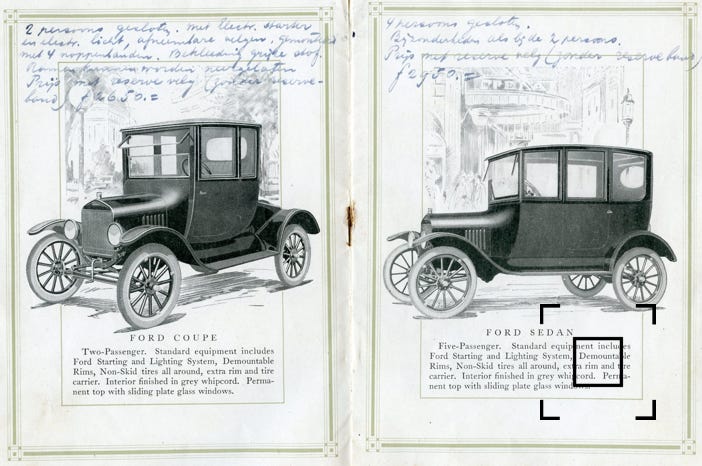 2 persoons gesloten. met Electr. starter
en electr. licht, afneembare velgen, gemonteerd
met 4 noppenbanden. Bekleeding grijze stof.
Ramen kunnen worden neergelaten
Prijs met reserve velg (zonder reserve-
band) f 2650.=
FORD COUPE
Two-Passenger. Standard equipment includes
Ford Starting and Lighting System, Demountable
Rims, Non-Skid tires all around, extra rim and tire
carrier. Interior finished in grey whipcord. Perma-
nent top with sliding plate glass windows.
4 persoons gesloten.
Bijzonderheden als bij de 2 persoons.
Prijs met reserve velg (zonder reserve band)
f 2950.=
FORD SEDAN
Five-Passenger. Standard equipment includes
Ford Starting and Lighting System, Demountable
Rims, Non-Skid tires all around, extra rim and tire
carrier. Interior finished in grey whipcord. Perma-
nent top with sliding plate glass windows.